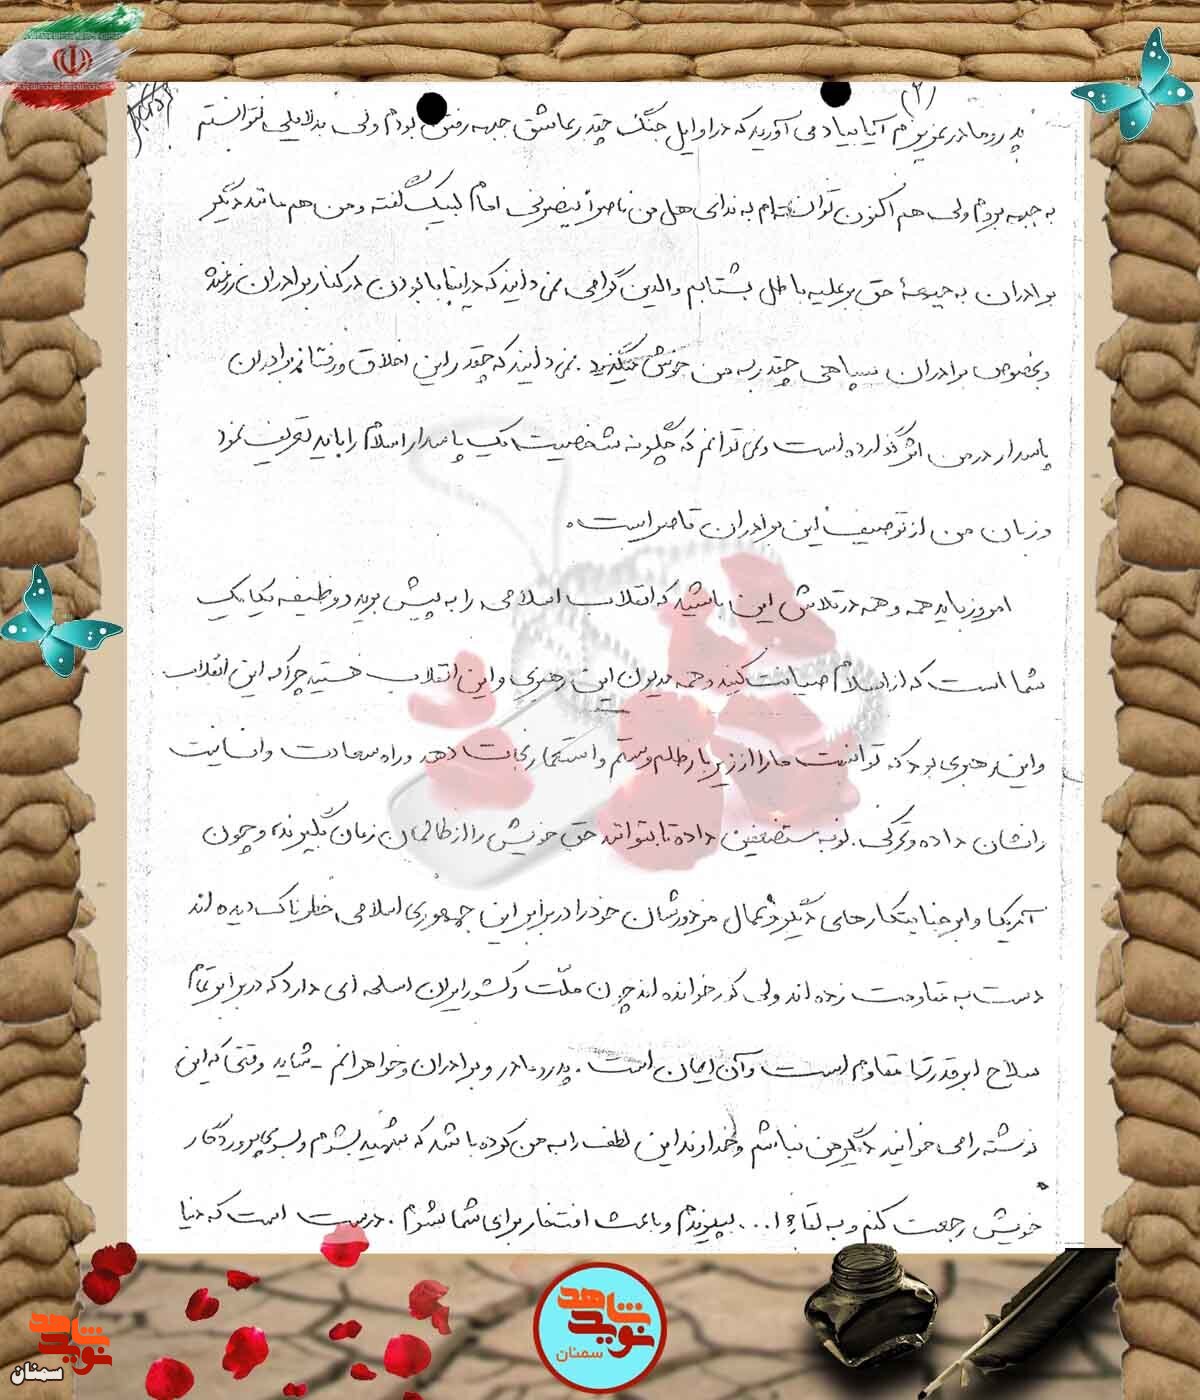 (۲)
پدر و مادر عزیزم آیا بیاد می آورید که در اوایل جنگ چقدر عاشق جبهه رفتن بودم ولی بدلایلی نتوانستم
به جبهه بروم ولی هم اکنون توانسته ام به ندای هل من ناصراً ینصرنی امام لبیک گفته و من هم مانند دیگر
برادران به جبهۀ حق بر علیه باطل بشتابم والدین گرامی نمی دانید که در اینجا با بودن در کنار برادران رزمنده
و بخصوص برادران سپاهی چقدر به من خوش میگذرد. نمی دانید که چقدر این اخلاق و رفتار برادران
پاسدار در من اثر گذارده است و نمی توانم که چگونه شخصیت یک پاسدار اسلام را باید تعریف نمود
و زبان من از توصیف این برادران قاصر است.
امروز باید همه و همه در تلاش این باشید که انقلاب اسلامی را به پیش برید و وظیفه یکایک
شما است که از اسلام صیانت کنید و همه مدیون این رهبری و این انقلاب هستید چرا که این انقلاب
و این رهبری بود که توانست ما را از زیر بار ظلم و ستم و استعمار نجات دهد و راه سعادت و انسانیت
را نشان داده و تحرکی نو به مستضعفین داده تا بتوانند حق خویش را از ظالمان زمان بگیرند، و چون
آمریکا و ابرجنایتکارهای دیگر و عمال مزدورشان خود را در برابر این جمهوری اسلامی خطرناک دیده اند
دست به مقاومت زده اند ولی کور خوانده اند چون ملّت و کشور ایران اسلحه ای دارد که در برابر تمام
سلاح ابرقدرتها مقاوم است و آن ایمان است. پدر و مادر و برادران و خواهرانم - شاید وقتی که این
نوشته را می خوانید دیگر من نباشم و خداوند این لطف را به من کرده باشد که شهید بشوم و بسوی پروردگار
خویش رجعت کنم و به لقاء ا... بپیوندم و باعث افتخار برای شما بشوم. درست است که دنیا
نوید شاهد
سمنان
نوید شاهد
سمنان